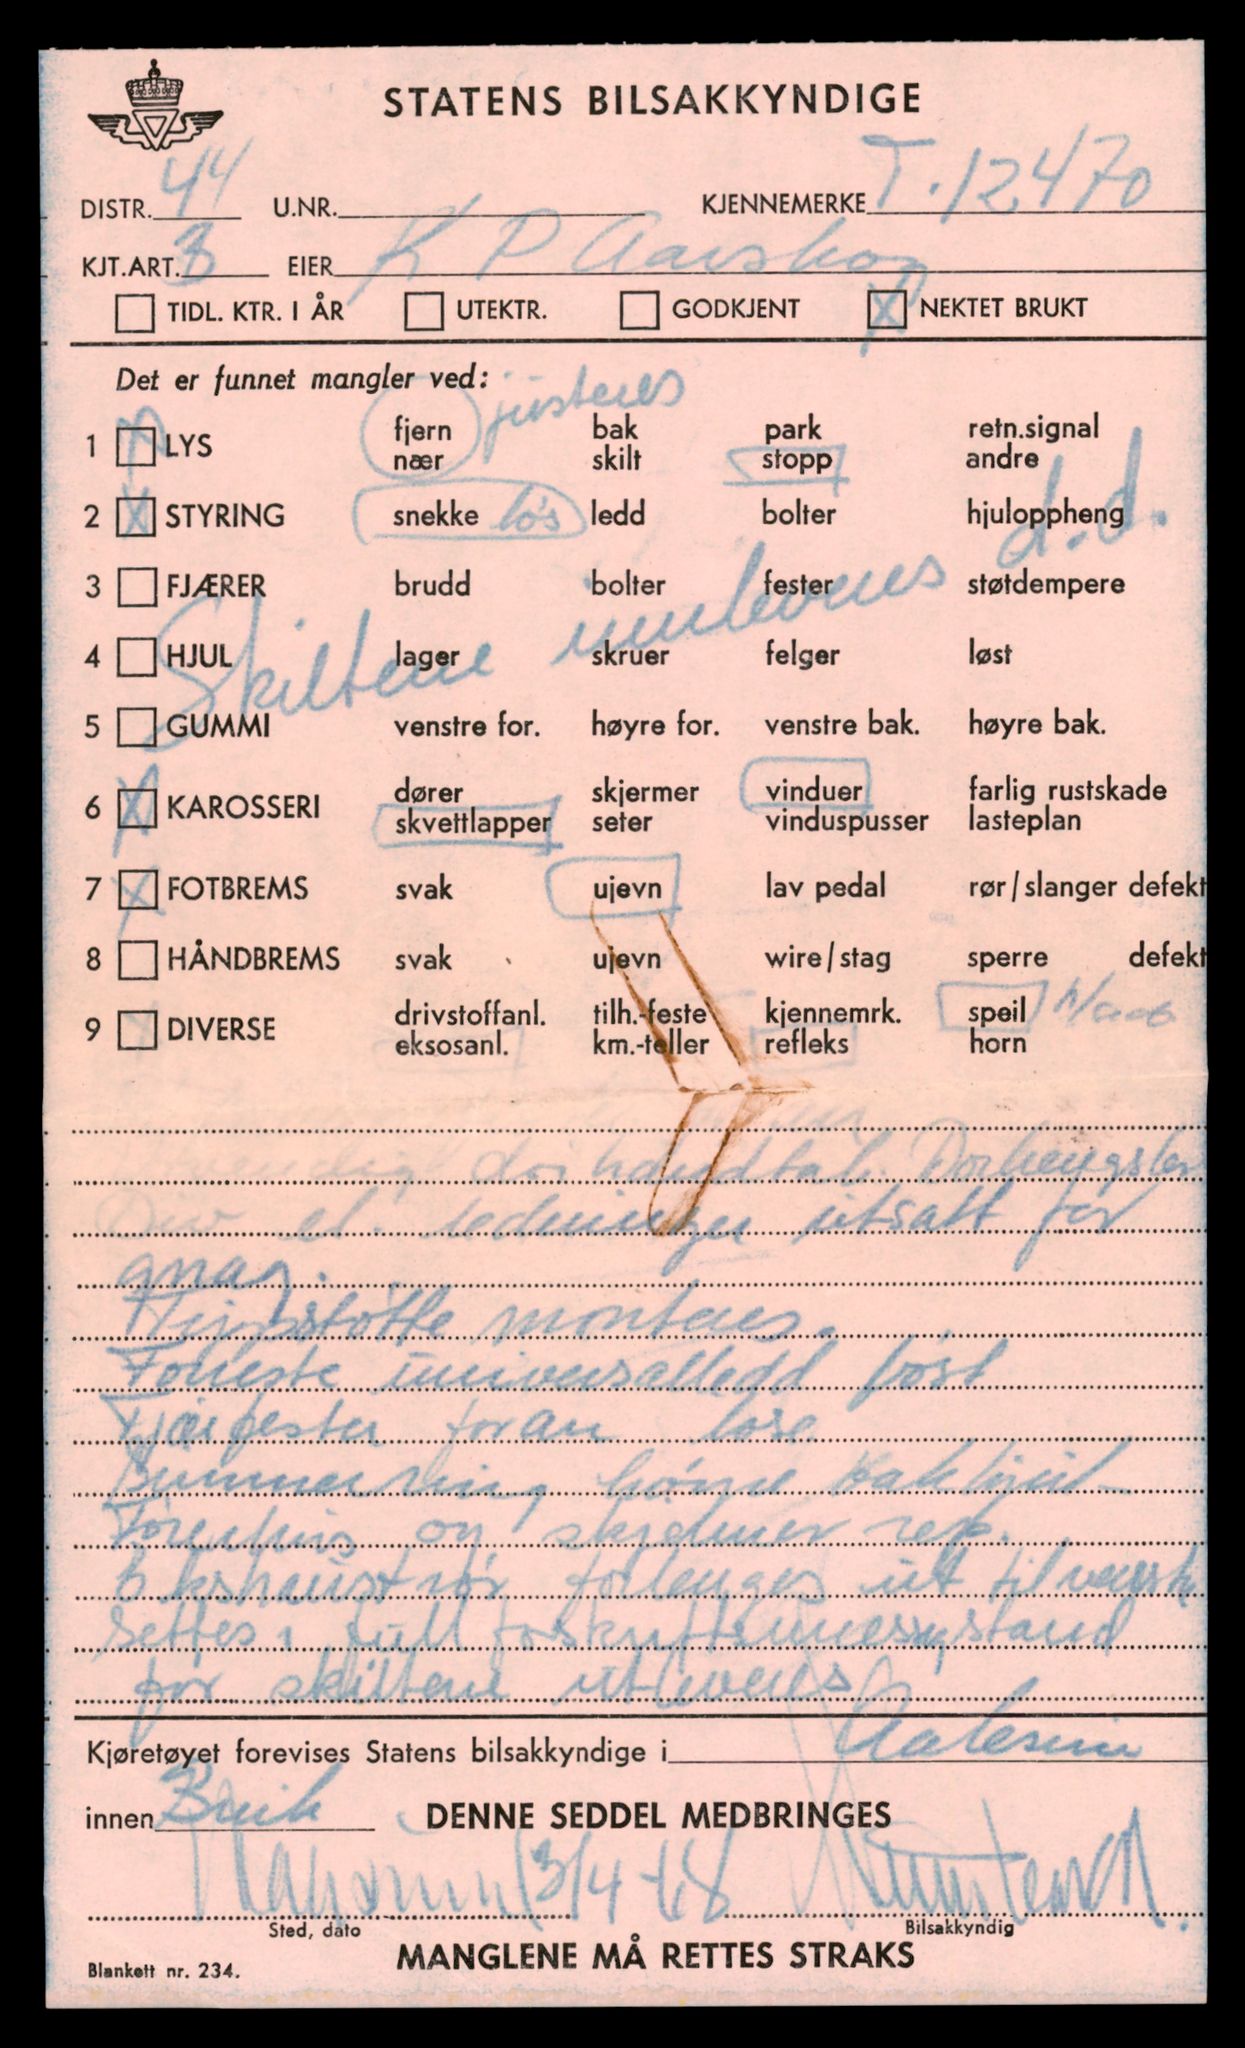 STATENS BILSAKKYNDIGE
DISTR. 44 U.NR. KJENNEMERKE T.12470
KJT.ART. 3 EIER K P Aarskog
TIDL. KTR. I ÅR UTEKTR. GODKJENT X NEKTET BRUKT
Det er funnet mangler ved: justeres
1 X LYS fjern bak park retn.signal
nær skilt stopp andre
2 X STYRING snekke løs ledd bolter hjuloppheng
3 FJÆRER brudd bolter fester støtdempere
Skiltene innleveres d.d.
4 HJUL lager skruer felger løst
5 GUMMI venstre for. høyre for. venstre bak. høyre bak.
6 X KAROSSERI dører skjermer vinduer farlig rustskade
skvettlapper seter vinduspusser lasteplan
7 X FOTBREMS svak ujevn lav pedal rør/slanger defekt
8 HÅNDBREMS svak ujevn wire/stag sperre defekt
9 DIVERSE drivstoffanl. tilh.-feste kjennemrk. speil
eksosanl. km.-teller refleks horn
Dørhengsler
Div el. ledninger utsatt for
gnag.
Tippstøtte monteres.
Forreste universalledd løst
Fjærfester foran løse
høyre bakhjul
og skjermer rep.
Ekshaustrør forlenges ut til venstre
Settes i full forskriftsmessig stand
før skiltene utleveres
Kjøretøyet forevises Statens bilsakkyndige i Aalesund
innen Bruk DENNE SEDDEL MEDBRINGES
3/4-68
Sted, dato Bilsakkyndig
Blankett nr. 234. MANGLENE MÅ RETTES STRAKS